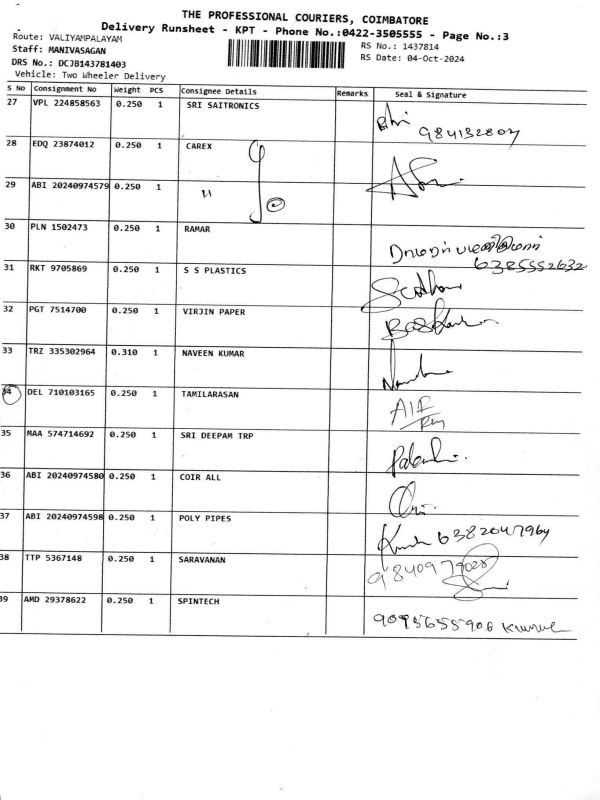 THE PROFESSIONAL COURIERS, COIMBATORE
Delivery Runsheet - KPT - Phone No.:0422-3505555 - Page No.:3
Route: VALIYAMPALAYAM
RS No.: 1437814
Staff: MANIVASAGAN
RS Date: 04-Oct-2024
DRS No.: DCJB143781403
Vehicle: Two Wheeler Delivery
S No Consignment No Weight PCS Consignee Details Remarks Seal & Signature
27 VPL 224858563 0.250 1 SRI SAITRONICS
28 EDQ 23874012 0.250 1 CAREX
29 ABI 20240974579 0.250 1 "
30 PLN 1502473 0.250 1 RAMAR
6385552632
31 RKT 9705869 0.250 1 S S PLASTICS
32 PGT 7514700 0.250 1 VIRJIN PAPER
33 TRZ 335302964 0.310 1 NAVEEN KUMAR
34 DEL 710103165 0.250 1 TAMILARASAN
35 MAA 574714692 0.250 1 SRI DEEPAM TRP
36 ABI 20240974580 0.250 1 COIR ALL
37 ABI 20240974598 0.250 1 POLY PIPES
6382047964
38 TTP 5367148 0.250 1 SARAVANAN
39 AMD 29378622 0.250 1 SPINTECH
9095655906